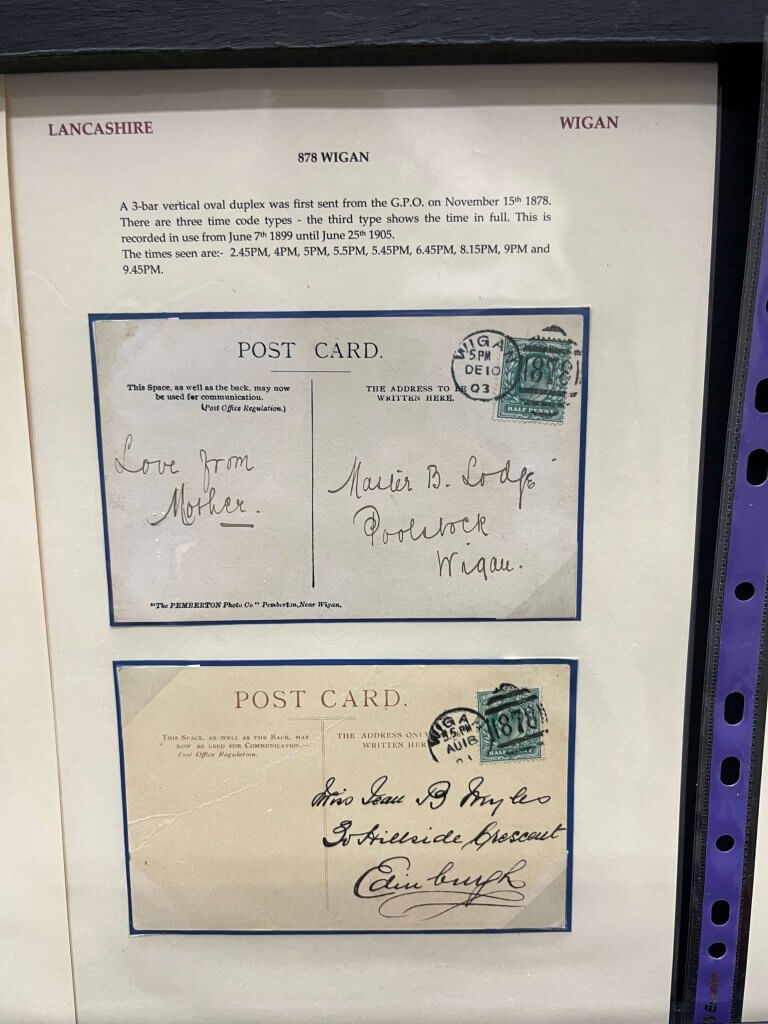 LANCASHIRE
WIGAN
878 WIGAN
A 3-bar vertical oval duplex was first sent from the G.P.O. on November 15th 1878.
There are three time code types - the third type shows the time in full. This is
recorded in use from June 7th 1899 until June 25th 1905.
The times seen are:- 2.45PM, 4PM, 5PM, 5.5PM, 5.45PM, 6.45PM, 8.15PM, 9PM and
9.45PM.
POST CARD.
WIGAN
5.PM
DE 10
03
878
HALF PENNY
This Space, as well as the back, may now
be used for communication.
(Post Office Regulation.)
THE ADDRESS TO BE
WRITTEN HERE.
Love from
Mother.
Master B. Lodge
Poolstock
Wigan.
"The PEMBERTON Photo Co" Pemberton, Near Wigan.
POST CARD.
WIGA
5.5.PM
AU 18
878
HALF PENNY
THIS SPACE, AS WELL AS THE BACK, MAY
NOW BE USED FOR COMMUNICATION.—
Post Office Regulation.
THE ADDRESS ONLY
WRITTEN HER
Miss Jean B Myles
Hillside Crescent
Edinburgh